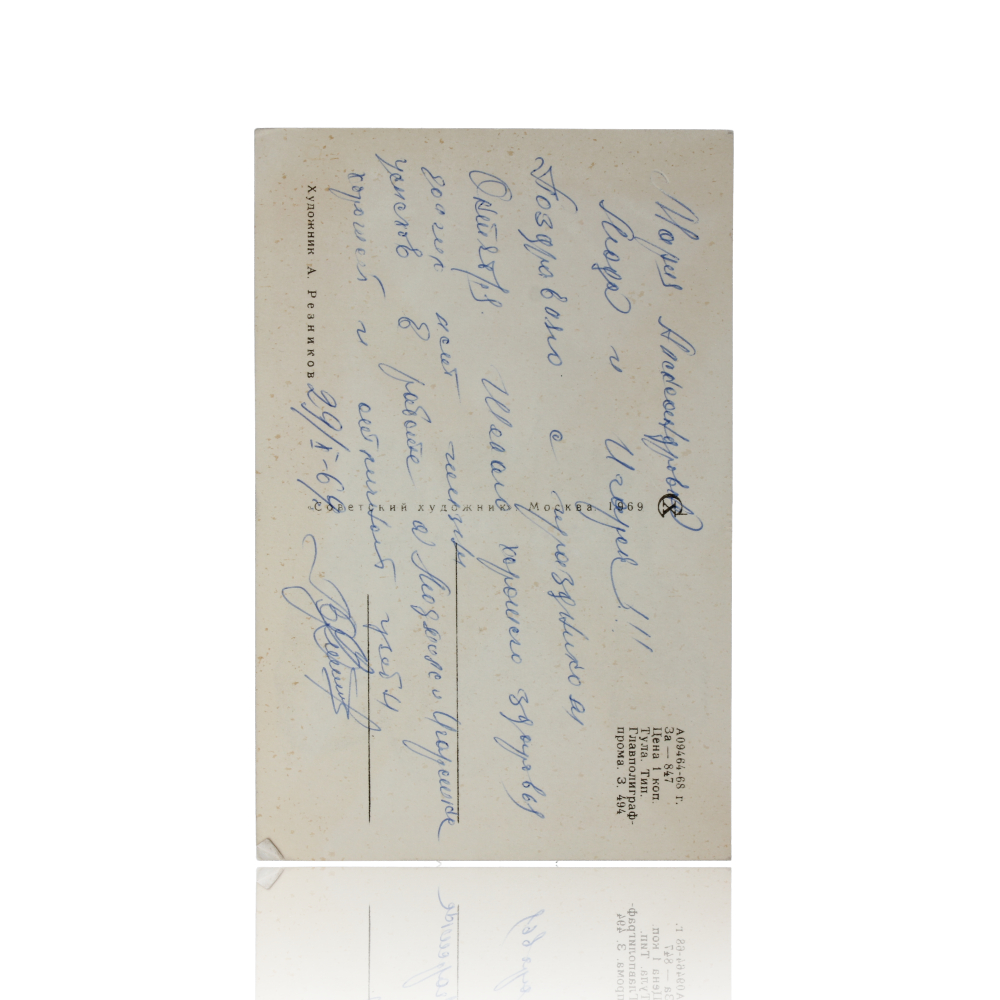 Мария Александровна
Люда и Игорь!!!
Поздравляю с праздником
Октября. Желаю хорошего здоровья
долгих лет жизни
успехов в работе а Людочке и Игорешке
хорошей и отличной учебы
29/X-69
Художник А. Резников
Советский художник. Москва 1969
А09464-68 г.
За — 847
Цена 1 коп.
Тула. Тип.
Главполиграф-
прома. З. 494